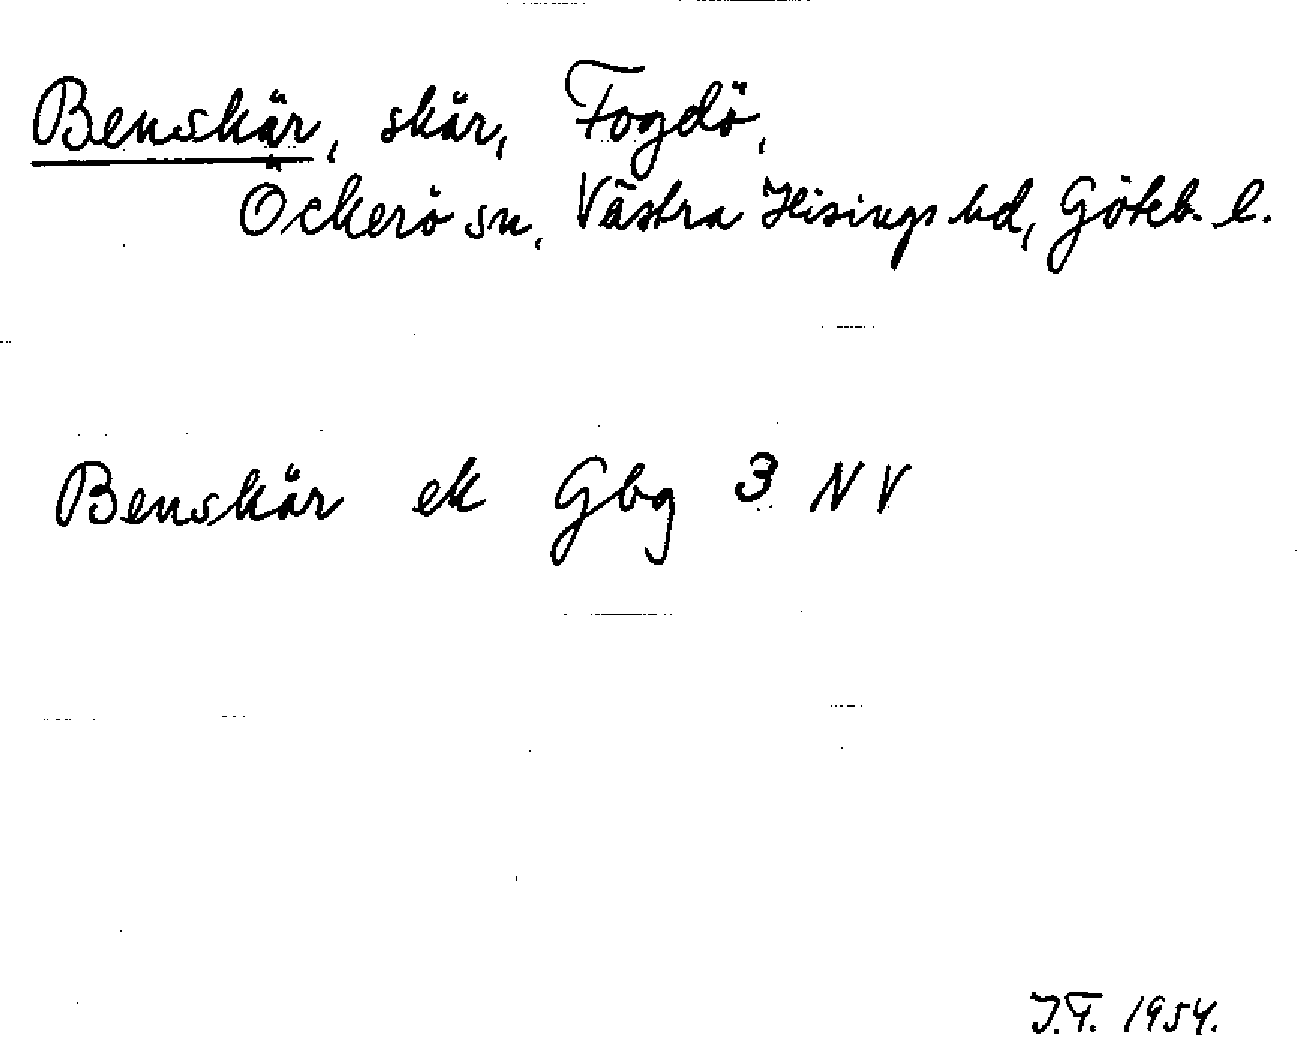 Benskär, skär, Fogdö,
Öckerö sn, Västra Hisings hd, Göteb. l.
Benskär ek Gbg 3 NV
J.F. 1954.